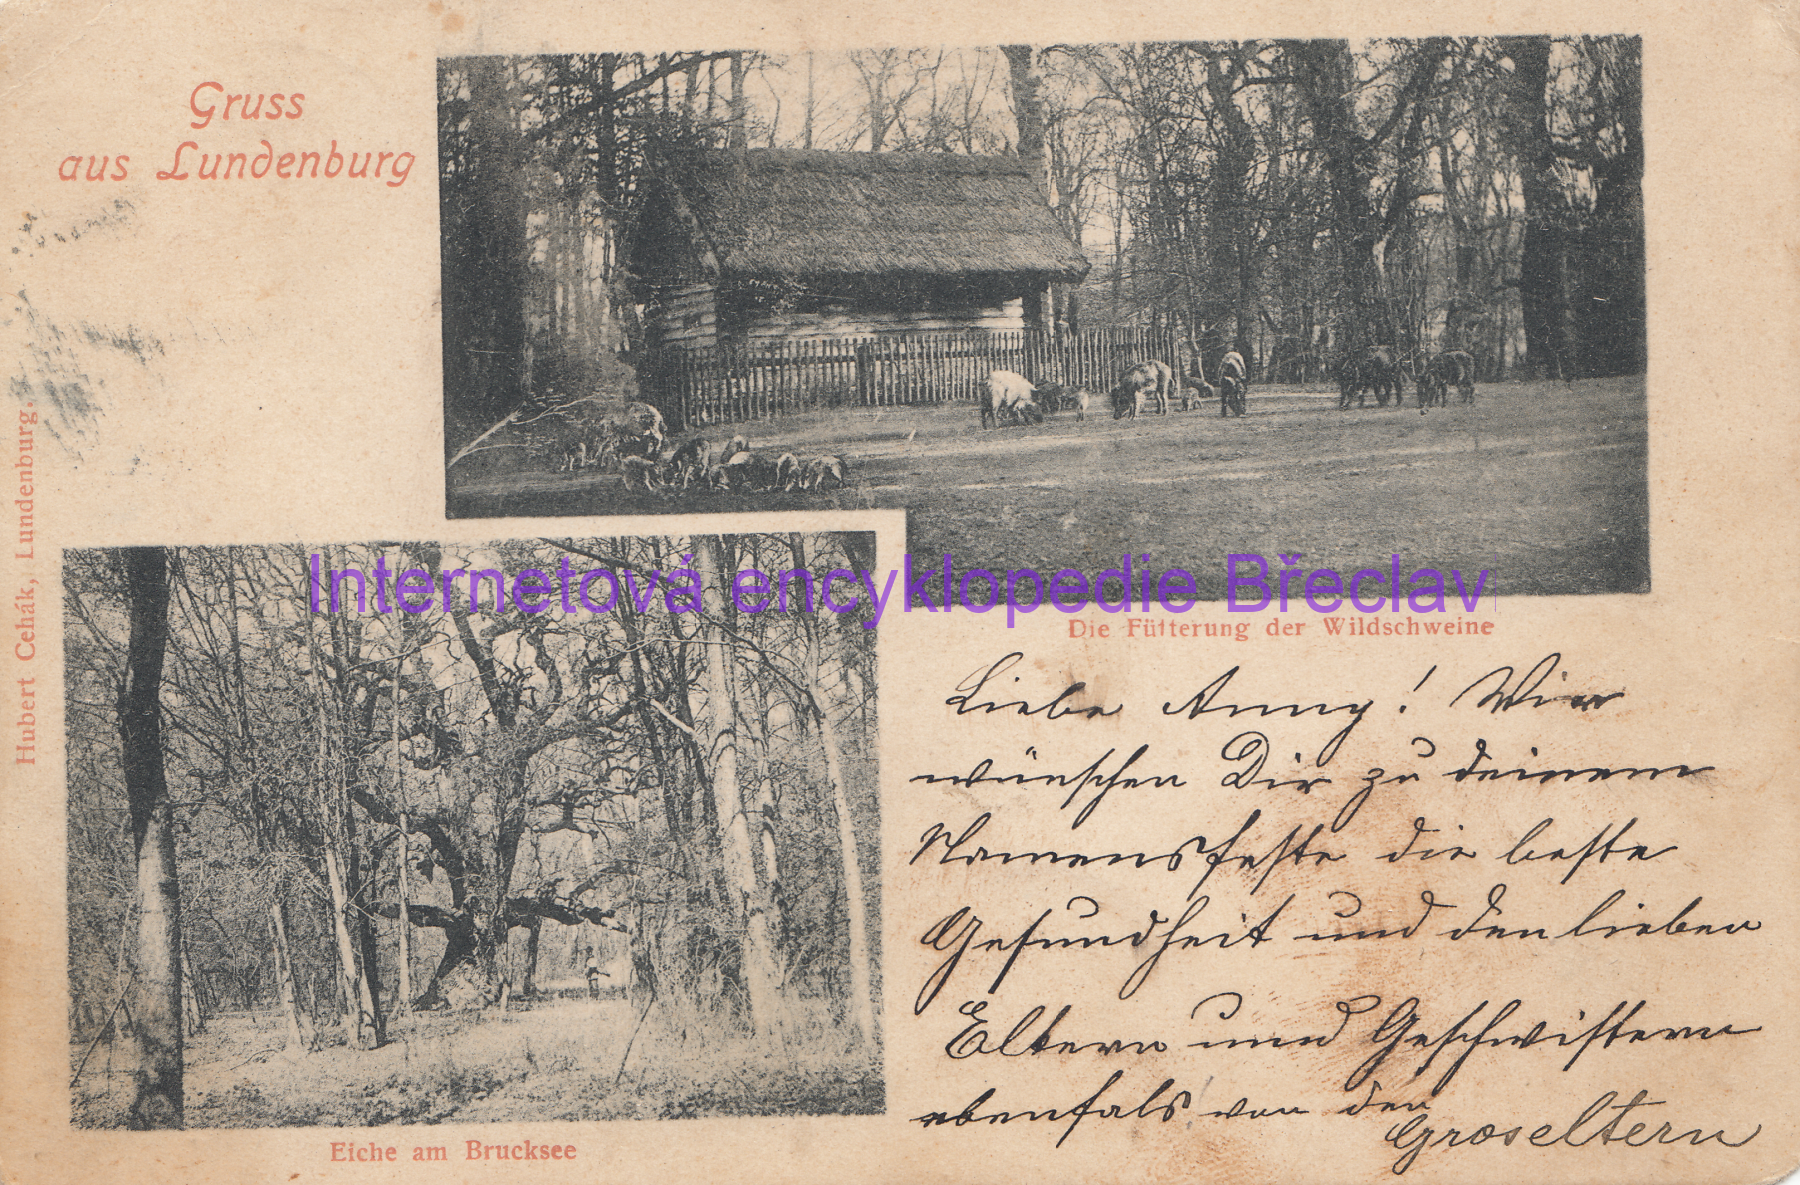 Gruss
aus Lundenburg
Hubert Cehák, Lundenburg.
Internetová encyklopedie Břeclav
Die Fütterung der Wildschweine
Liebe Anny! Wir
wünschen Dir zu deinem
Namensfeste die beste
Gesundheit und den lieben
Eltern und Geschwistern
ebenfals von den
Groseltern
Eiche am Brucksee